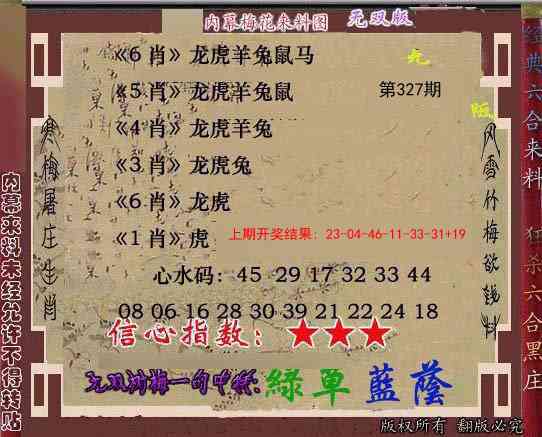 内幕梅花来料图 无双版
《6肖》龙虎羊兔鼠马
《5肖》龙虎羊兔鼠 第327期
《4肖》龙虎羊兔
《3肖》龙虎兔
《6肖》龙虎
《1肖》虎
上期开奖结果：23-04-46-11-33-31+19
心水码：45 29 17 32 33 44
08 06 16 28 30 39 21 22 24 18
信心指数：★★★
綠单 藍蔭
版权所有 翻版必究
寒梅屠庄生肖
风雪竹梅欲钱料
内幕来料未经允许不得转贴
经典六合来料 狂杀六合黑庄